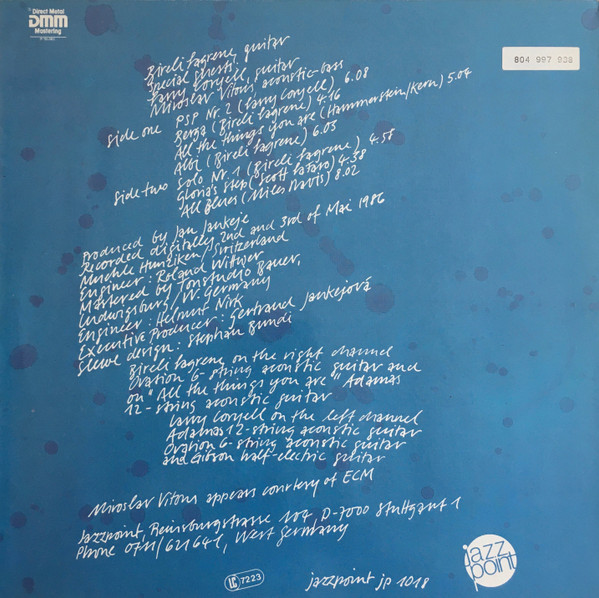 Direct Metal
DMM
Mastering
804 997 908
Bireli Lagrene, guitar
Special guests:
Larry Coryell, guitar
Miroslav Vitous, acoustic-bass
side one PSP Nr. 2 (Larry Coryell) 6.08
Berga (Bireli Lagrene) 4.16
All the things you are (Hammerstein/Kern) 5.04
Albi (Bireli Lagrene) 6.03
side two Solo Nr. 1 (Bireli Lagrene) 4.58
Gloria's step (Scott LaFaro) 4.38
All Blues (Miles Davis) 8.02
Produced by Jan Jankeje
Recorded digitally, 2nd and 3rd of Mai 1986
Muehle Hunziken/Switzerland
Engineer: Roland Wittner
Mastered by Tonstudio Bauer,
Ludwigsburg/W. Germany
Engineer: Helmut Nirk
Executive Producer: Gertrand Jankejová
Sleeve design: Stephan Bundi
Bireli Lagrene on the right channel
Ovation 6-string acoustic guitar and
on "All the things you are" Adamas
12-string acoustic guitar
Larry Coryell on the left channel
Adamas 12-string acoustic guitar
Ovation 6-string acoustic guitar
and Gibson half-electric guitar
Miroslav Vitous appears courtesy of ECM
Jazzpoint, Reinsburgstrasse 104, D-7000 Stuttgart 1
Phone 0711/621641, West Germany
LC 7223
jazzpoint jp 1018
jazz
point